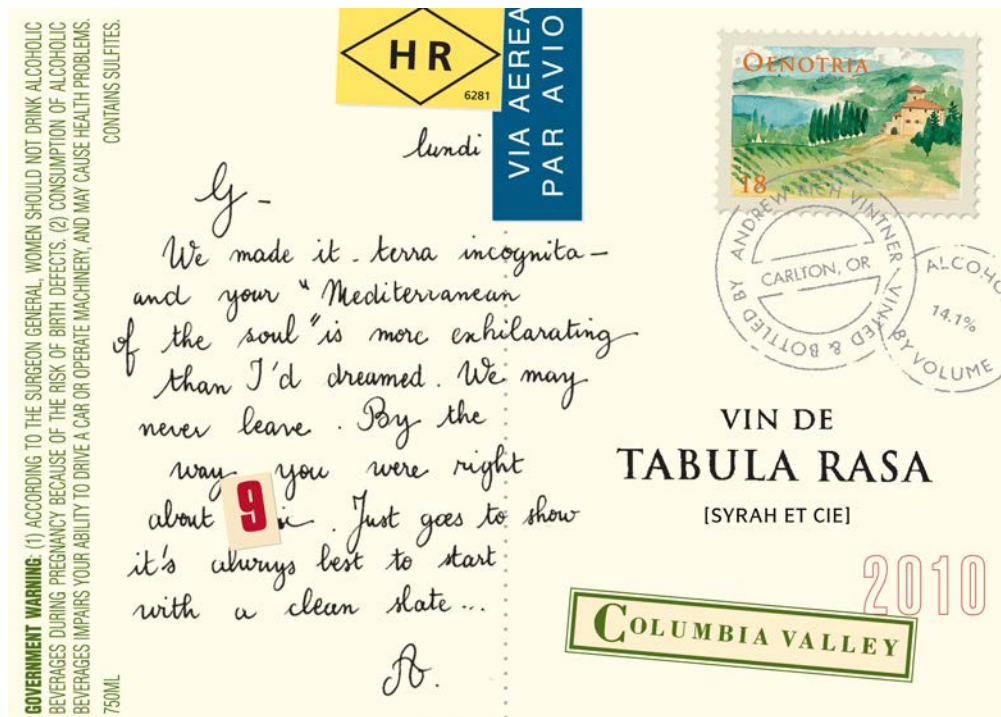 GOVERNMENT WARNING: (1) ACCORDING TO THE SURGEON GENERAL, WOMEN SHOULD NOT DRINK ALCOHOLIC
BEVERAGES DURING PREGNANCY BECAUSE OF THE RISK OF BIRTH DEFECTS. (2) CONSUMPTION OF ALCOHOLIC
BEVERAGES IMPAIRS YOUR ABILITY TO DRIVE A CAR OR OPERATE MACHINERY, AND MAY CAUSE HEALTH PROBLEMS.
750ML CONTAINS SULFITES.
HR
6281
VIA AEREA
PAR AVIO
lundi
G -
We made it - terra incognita -
and your "Mediterranean
of the soul" is more exhilarating
than I'd dreamed. We may
never leave. By the
way you were right
about 9 . Just goes to show
it's always best to start
with a clean slate...
A.
OENOTRIA
18
ANDREW RICH VINTNER
VINTED & BOTTLED BY
CARLTON, OR
ALCOHO
14.1%
BY VOLUME
VIN DE
TABULA RASA
[SYRAH ET CIE]
2010
COLUMBIA VALLEY